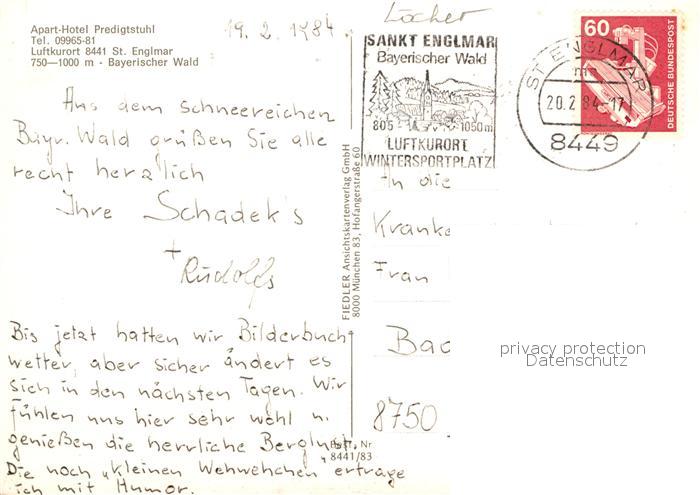 Apart-Hotel Predigtstuhl
Tel. 09965-81
Luftkurort 8441 St. Englmar
750—1000 m - Bayerischer Wald
19. 2. 1984
Aus dem schneereichen
Bayr. Wald grüßen Sie alle
recht herzlich
Ihre Schadek's
+
Rudolfs
Bis jetzt hatten wir Bilderbuch-
wetter, aber sicher ändert es
sich in den nächsten Tagen. Wir
fühlen uns hier sehr wohl u.
genießen die herrliche Bergluft.
Die noch "kleinen Wehwehchen ertrage
ich mit Humor.
FIEDLER Ansichtskartenverlag GmbH
8000 München 83, Hofangerstraße 60
Best. Nr
8441/83
Löcher
SANKT ENGLMAR
Bayerischer Wald
805 - 1050m
LUFTKURORT
WINTERSPORTPLATZ
ST ENGLMAR
20.2.84-17
8449
60
DEUTSCHE BUNDESPOST
An die
Kranke
Frau
Bad
8750
privacy protection
Datenschutz